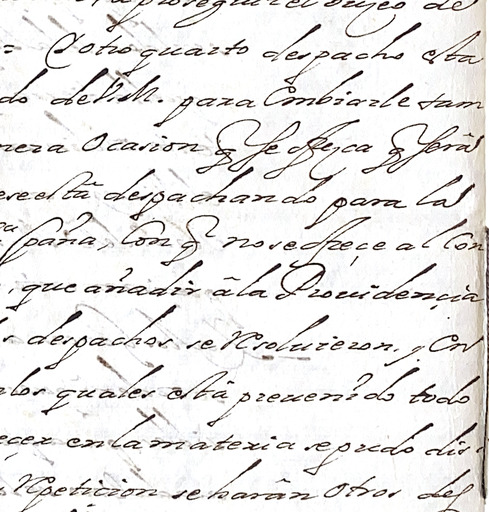 a proseguir el viaje de
= Y otro quarto despacho esta
do de V.M. para Embiarle tam
mera Ocasion q̃ se ofrezca q̃ serâ
ese estâ despachando para la
spaña, Con q̃ no se ofrece al Con
, que añadir â la Providençia
s despachos se Resoluieron, y En
los quales estâ preuenido todo
ecer en la materia se pudo dis
Repeticion se harân Otros des